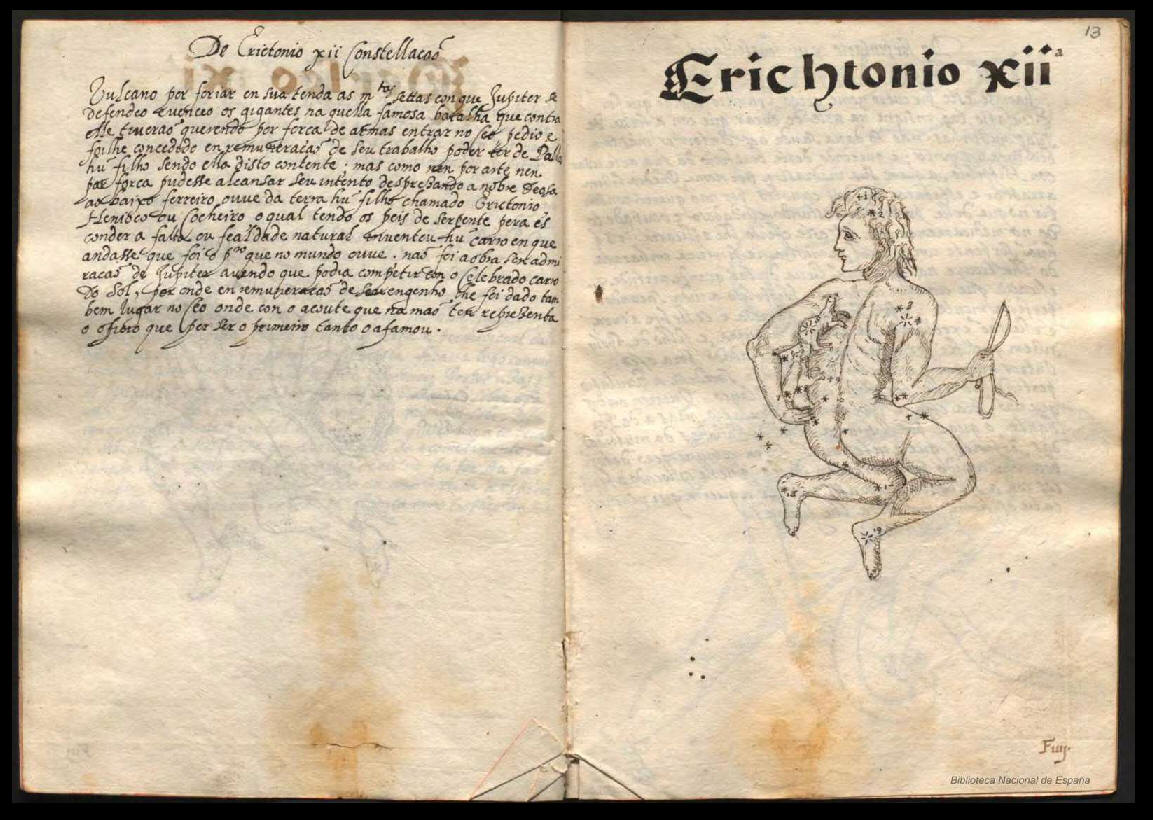 De Erictonio xii Constellacaõ
Vulcano por foriar en sua tenda as m.tas settas con que Jupiter se
defendeo & venceo os gigantes na quella famosa batalha que contra
elle tiveraõ querendo por forca de armas entrar no seo pedio e
foi lhe concedido en remuneracaõ de seu trabalho poder ter de Pallas
hũ filho sendo ella disto contente . mas como nen por arte nen
por forca pudesse alcansar seu intento despresando a nobre Deosa
ao baixo ferreiro ouve da terra hũ filho chamado Erictonio
Henioco ou Cocheiro o qual tendo os peis de serpente pera es
conder a falta ou fealdade natural inventou hũ carro en que
andasse que foi o p.ro que no mundo ouve . naõ foi a obra sen admi
racaõ de Jupiter avendo que podia competir con o celebrado carro
do Sol, por onde en remuneracaõ de seu engenho lhe foi dado tam
bem lugar no seo onde con o acoute que na maõ ten representa
o officio que por ser o primeiro tanto o afamou .
13
Erichtonio xii a
Fuij.
Biblioteca Nacional de España